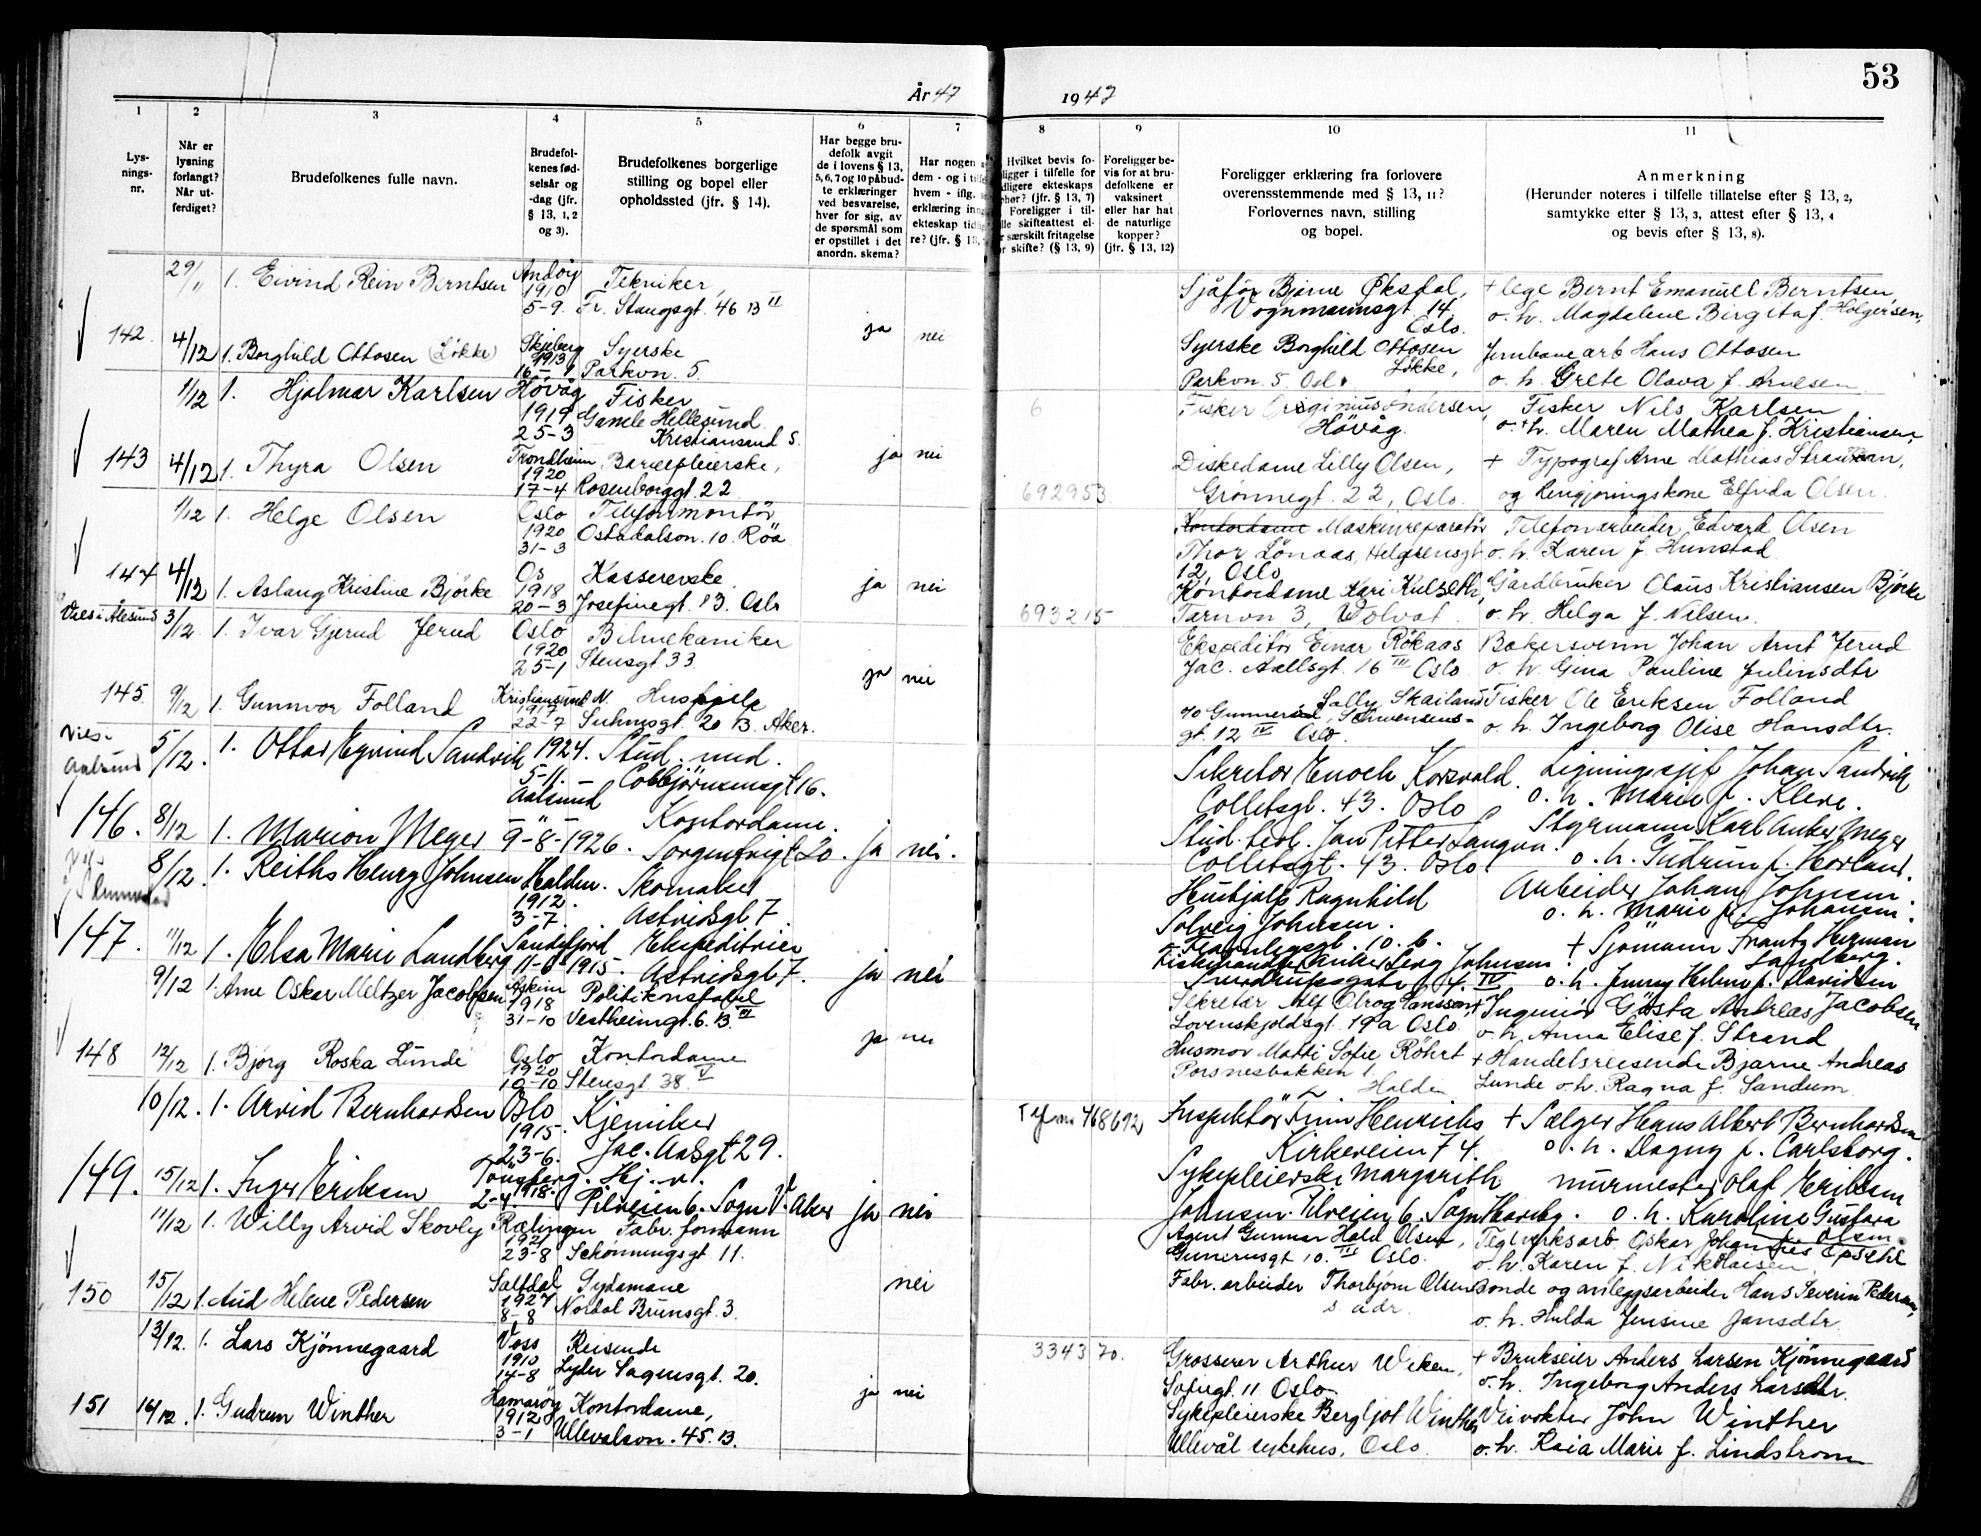 År 47
1947
53
1 2 3 4 5 6 7 8 9 10 11
Lys-
nings-
nr.
Når er
lysning
forlangt?
Når ut-
ferdiget?
Brudefolkenes fulle navn.
Brudefol-
kenes fød-
selsår og
-dag (jfr.
§ 13, 1, 2
og 3).
Brudefolkenes borgerlige
stilling og bopel eller
opholdssted (jfr. § 14).
Har begge bru-
defolk avgit
de i lovens § 13,
5, 6, 7 og 10 påbud-
te erklæringer
ved besvarelse,
hver for sig, av
de spørsmål som
er opstillet i det
anordn. skema?
Har nogen
dem - og i
hvem - iflg.
erklæring
ekteskap
re? (jfr. § 13,
Hvilket bevis fo-
religger i tilfelle for
tidligere ekteskaps
(jfr. § 13, 7)
Foreligger i til-
skifteattest el-
særskilt fritagelse
skifte? (§ 13, 9)
Foreligger be-
vis for at bru-
defolkene er
vaksinert
eller har hat
de naturlige
kopper?
(jfr. § 13, 12)
Foreligger erklæring fra forlovere
overensstemmende med § 13, 11?
Forlovernes navn, stilling
og bopel.
Anmerkning
(Herunder noteres i tilfelle tillatelse efter § 13, 2,
samtykke efter § 13, 3, attest efter § 13, 4
og bevis efter § 13, 8).
29/11 1. Eivind Rein Berntsen
Andøy
1910
5-9.
Tekniker,
Fr. Stangsgt. 46 B II
Sjåfør Bjarne Øksdal,
Vognmannsgt. 14
Oslo.
+ lege Bernt Emanuel Berntsen,
o. h. Magdalene Birgitta f. Holgersen,
142. 4/12 1. Borghild Ottosen (Løkke)
Skjeberg
1913
Syerske
Parkvn. 5
ja nei
Syerske Borghild Ottosen
Løkke,
Parkvn. 5. Oslo
Jernbanearb Hans Ottosen
o. h. Grete Olava f. Arnesen
1/12 1. Hjalmar Karlsen
Høvåg
1919
25-3
Fisker
Gamle Hellesund
Kristiansand S.
6
Fisker Andersen,
Høvåg.
Fisker Nils Karlsen
o. + h. Maren Mathea f. Kristiansen,
143 4/12 1. Thyra Olsen
Trondheim
1920
17-4
Barnepleierske,
Rosenborggt. 22
ja nei
692953
Diskedame Lilly Olsen,
Grønnegt. 22, Oslo.
+ Typograf Arne Mathias
og Rengjøringskone Elfrida Olsen.
1/12 1. Helge Olsen
Oslo
1920
31-3
Telefonmontør
Røa
Kontordame Maskinreparatør
Thor Lønaas, Helgesensgt
12, Oslo
Telefonarbeider Edvard Olsen
o. h. Karen f. Hunstad
144 4/12 1. Aslaug Kristine Bjørke
Os
1918
20-3
Kassererske
Josefinegt. 13. Oslo
ja nei
693215
Kontordame Kari
Tårnvn 3,
Gårdbruker Olaus Kristiansen Bjørke
o. h. Helga f. Nilsen.
Vies i Ålesund 3/12. 1. Ivar Gjerud Jerud
Oslo
1920
25-1
Bilmekaniker
Stensgt 33
Ekspeditør Einar Røkaas
Jac. Aallsgt. 16 III Oslo
Bakersvenn Johan Arnt Jerud
o. h. Gina Pauline Juliusdtr
145. 9/12 1. Gunnvor Folland
Kristiansund N.
1917
22-7
Hushjelp
Suhmsgt. 20 B. Aker.
ja nei
Sally Skailand
c/o Gunnerud, Schwensens-
gt. 12 IV Oslo.
Fisker Ole Eriksen Folland
o. h. Ingeborg Olise Hansdtr.
vies
Aalesund
5/12. 1. Ottar Eyvind Sandvik
1924.
5-11. -
Aalesund
Stud. med.
Colbjørnsensgt 16.
Sekretær Enoch Korsvold.
Colletsgt. 43. Oslo
Ligningssjef Johan Sandvik
o. h. Marie f. Kleve.
146. 8/12 1. Marion Meyer
- " -
9-8-1926.
Kontordame.
Sorgenfrigt. 20.
ja nei.
Stud. teol. Jan Petter Langva.
Colletsgt. 43. Oslo
Styrmann Karl Anker Meyer
o. h. Gudrun f. Horland.
8/12. 1. Reiths Henry Johnsen
Halden.
1912.
3-7.
Skomaker
Astridsgt. 7.
Hushjelp Ragnhild
Solveig Johnsen.
10. b.
Arbeider Johan Johnsen.
o. h. Marie f. Johansen.
147. 11/12 1. Elsa Marie Landberg
Sandefjord
11-6-1915.
Ekspeditrise
Astridsgt 7.
ja nei
Fiskehandler Anker Serg Johnsen
14. IV
+ Sjømann Frantz Herman
Landberg.
o. h. Jenny Helene f. Davidsen
9/12 1. Arne Oskar Meltzer Jacobsen
Askim
1918
31-10
Politikonstabel
Vestheimgt. 6. B. III
Sekretær Alf Olrog
Løvenskjoldsgt. 19a Oslo
+ Ingeniør Gösta Andreas Jacobsen
o. h. Anna Elise f. Strand
148 12/12 1. Bjørg Roska Lunde
Oslo
1920
10-10
Kontordame
Stensgt 38. V
ja nei
Husmor Matti Sofie Røhrt
Porsnesbakken 1.
Halden
+ Handelsreisende Bjarne Andreas
Lunde o. h. Ragna f. Sandum
10/12. 1. Arvid Bernhardsen
Oslo
1915.
23-6.
Kjemiker
Jac. Aalsgt 29.
468692
Inspektør Finn Henrichs
Kirkeveien 74.
+ Selger Hans Albert Bernhardsen
o. h. Dagny f. Carlsborg.
149. 15/12 1. Inger Eriksen
Tønsberg.
2-4. 1918.
Hj. v.
Pilveien 6. Sogn V. Aker
ja nei
Sykepleierske Margarith
Johnsen. Pilveien 6. Sogn Haveby.
murmester Olaf Eriksen
o. h. Karoline Gustava
Olsen.
11/12 1. Willy Arvid Skovly
Rælingen
1921
23-8
Fabr. formann
Schønningsgt 11.
Agent Gunnar Hald Olsen,
Gunerusgt 10. III Oslo.
Teglverksarb. Oskar Johannes
o. h. Karen f. Nikolaisen
150 15/12 1. Aud Helene Pedersen
Saltdal
1927
8-8
Sydame
Nordal Brunsgt. 3.
nei
Fabr. arbeider Thorbjørn Olsen
s. adr.
Bonde og anleggsarbeider Hans Severin Pedersen,
o. h. Hulda Jensine Jansdtr.
13/12. 1. Lars Kjønnegaard
Voss
1910
14-8
Reisende
Lyder Sagensgt. 20.
334370.
Grosserer Arthur Wiken,
Sofiegt. 11 Oslo
+ Brukseier Anders Larsen Kjønnegaard
o. h. Ingeborg Anders Larsdtr.
151 16/12. 1. Gudrun Winther
Hamarøy
1912
3-1
Kontordame,
Ullevalsvn. 45. B.
ja nei
Sykepleierske Bergljot Winther
Ullevål sykehus, Oslo.
Veivokter John Winther
o. h. Kaia Marie f. Lindstrøm